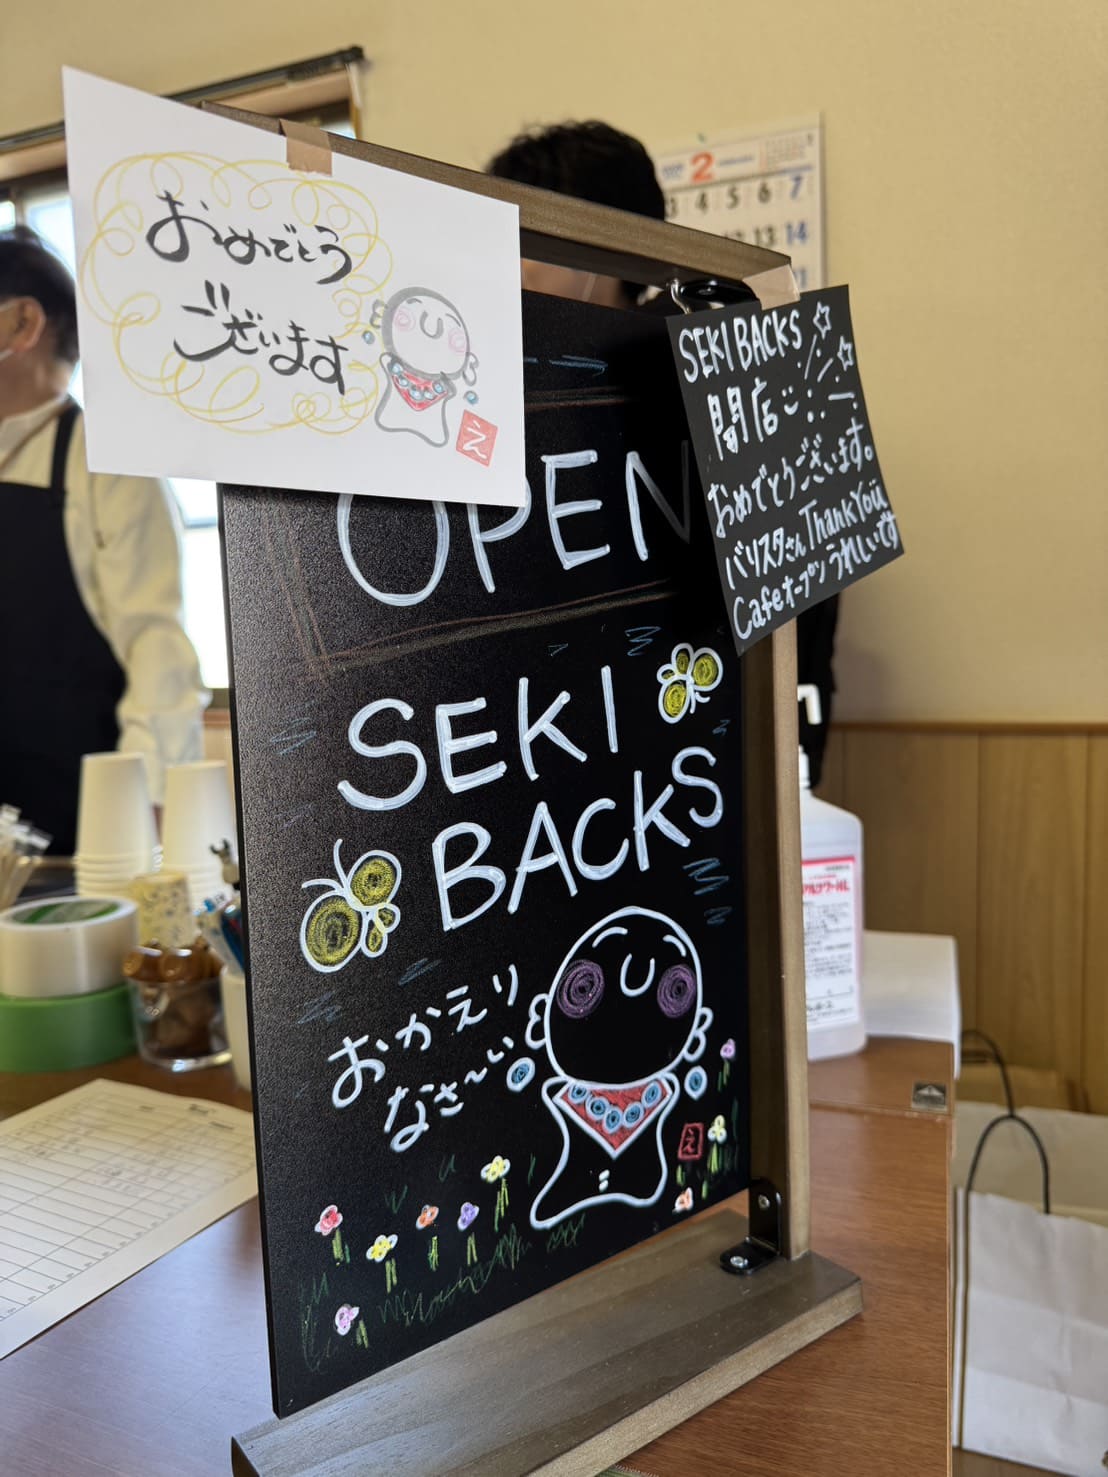 おめでとう
ございます
え
OPEN
SEKI
BACKS
おかえり
なさ〜い
え
SEKI BACKS
開店
おめでとうございます。
バリスタさん Thank You
Cafeオープン うれしいです
2
3 4 5 6 7
12 13 14